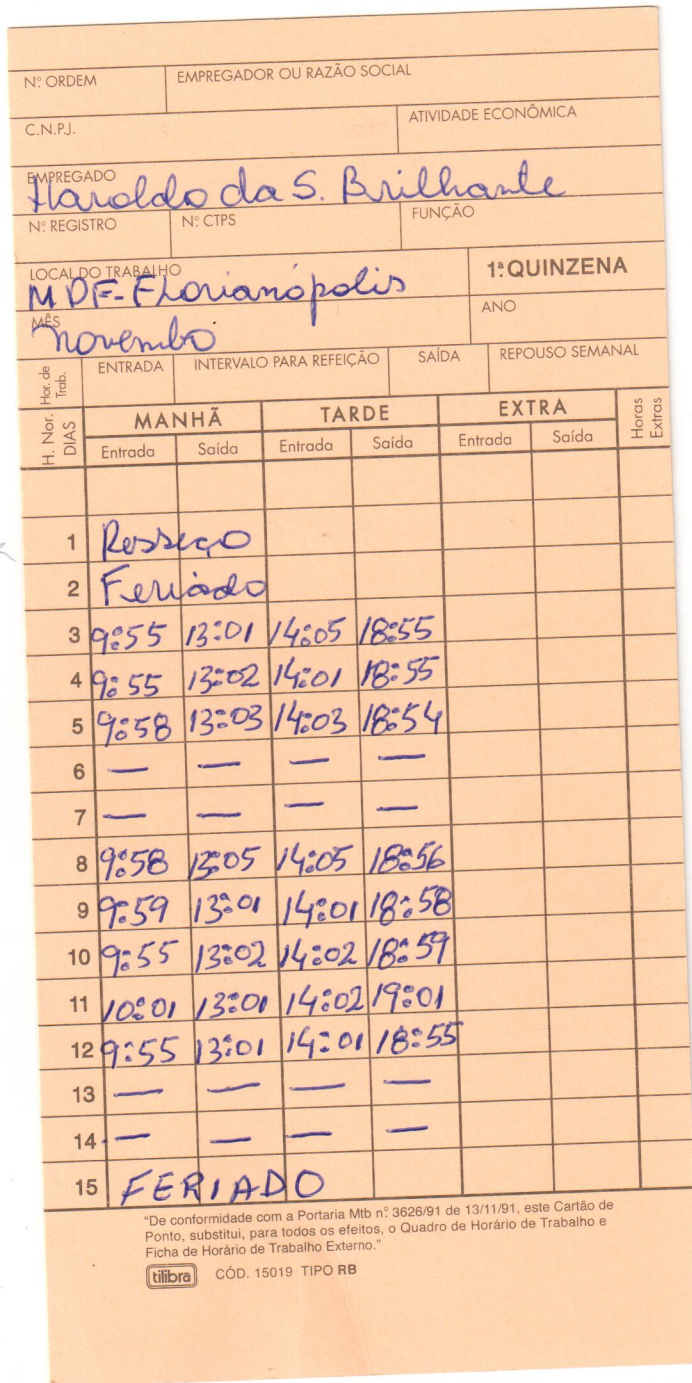 Nº ORDEM EMPREGADOR OU RAZÃO SOCIAL
C.N.P.J. ATIVIDADE ECONÔMICA
EMPREGADO
Haroldo da S. Brilhante
Nº REGISTRO Nº CTPS FUNÇÃO
LOCAL DO TRABALHO 1ª QUINZENA
MDF-Florianópolis
MÊS ANO
novembo
Hor. de Trab. ENTRADA INTERVALO PARA REFEIÇÃO SAÍDA REPOUSO SEMANAL
H. Nor. DIAS MANHÃ TARDE EXTRA Horas Extras
Entrada Saída Entrada Saída Entrada Saída
1 Resseço
2 Feriado
3 9:55 13:01 14:05 18:55
4 9:55 13:02 14:01 18:55
5 9:58 13:03 14:03 18:54
6 — — — —
7 — — — —
8 9:58 13:05 14:05 18:56
9 9:59 13:01 14:01 18:58
10 9:55 13:02 14:02 18:59
11 10:01 13:01 14:02 19:01
12 9:55 13:01 14:01 18:55
13 — — — —
14 — — — —
15 FERIADO
"De conformidade com a Portaria Mtb nº 3626/91 de 13/11/91, este Cartão de
Ponto, substitui, para todos os efeitos, o Quadro de Horário de Trabalho e
Ficha de Horário de Trabalho Externo."
tilibra CÓD. 15019 TIPO RB